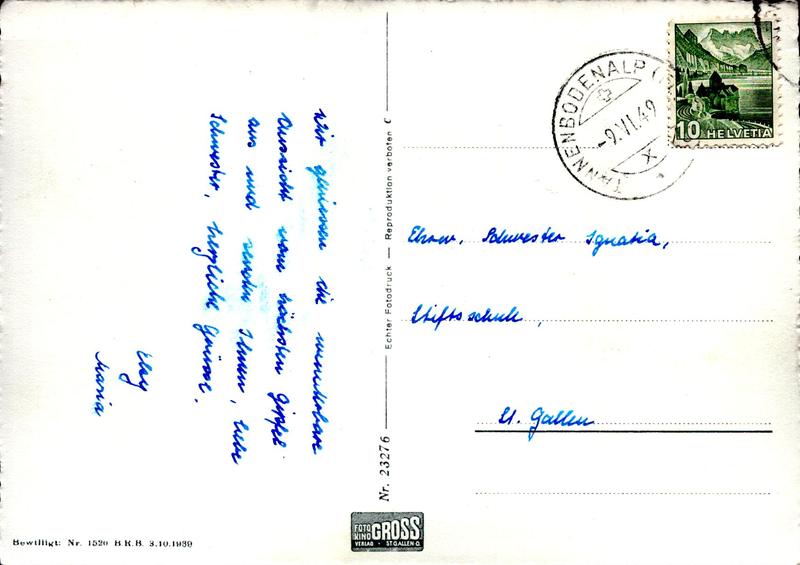 Wir geniessen die wunderbare
Aussicht vom höchsten Gipfel
aus und senden Ihnen, liebe
Schwester, herzliche Grüsse.
Elsy
Maria
Bewilligt: Nr. 1520 B.R.B. 3.10.1939
Nr. 23276 — Echter Fotodruck — Reproduktion verboten
FOTO KINO GROSS
VERLAG • ST. GALLEN O.
TANNENBODENALP
-9.VI.49
X
10 HELVETIA
Ehrw. Schwester Ignatia,
Stiftsschule,
St. Gallen